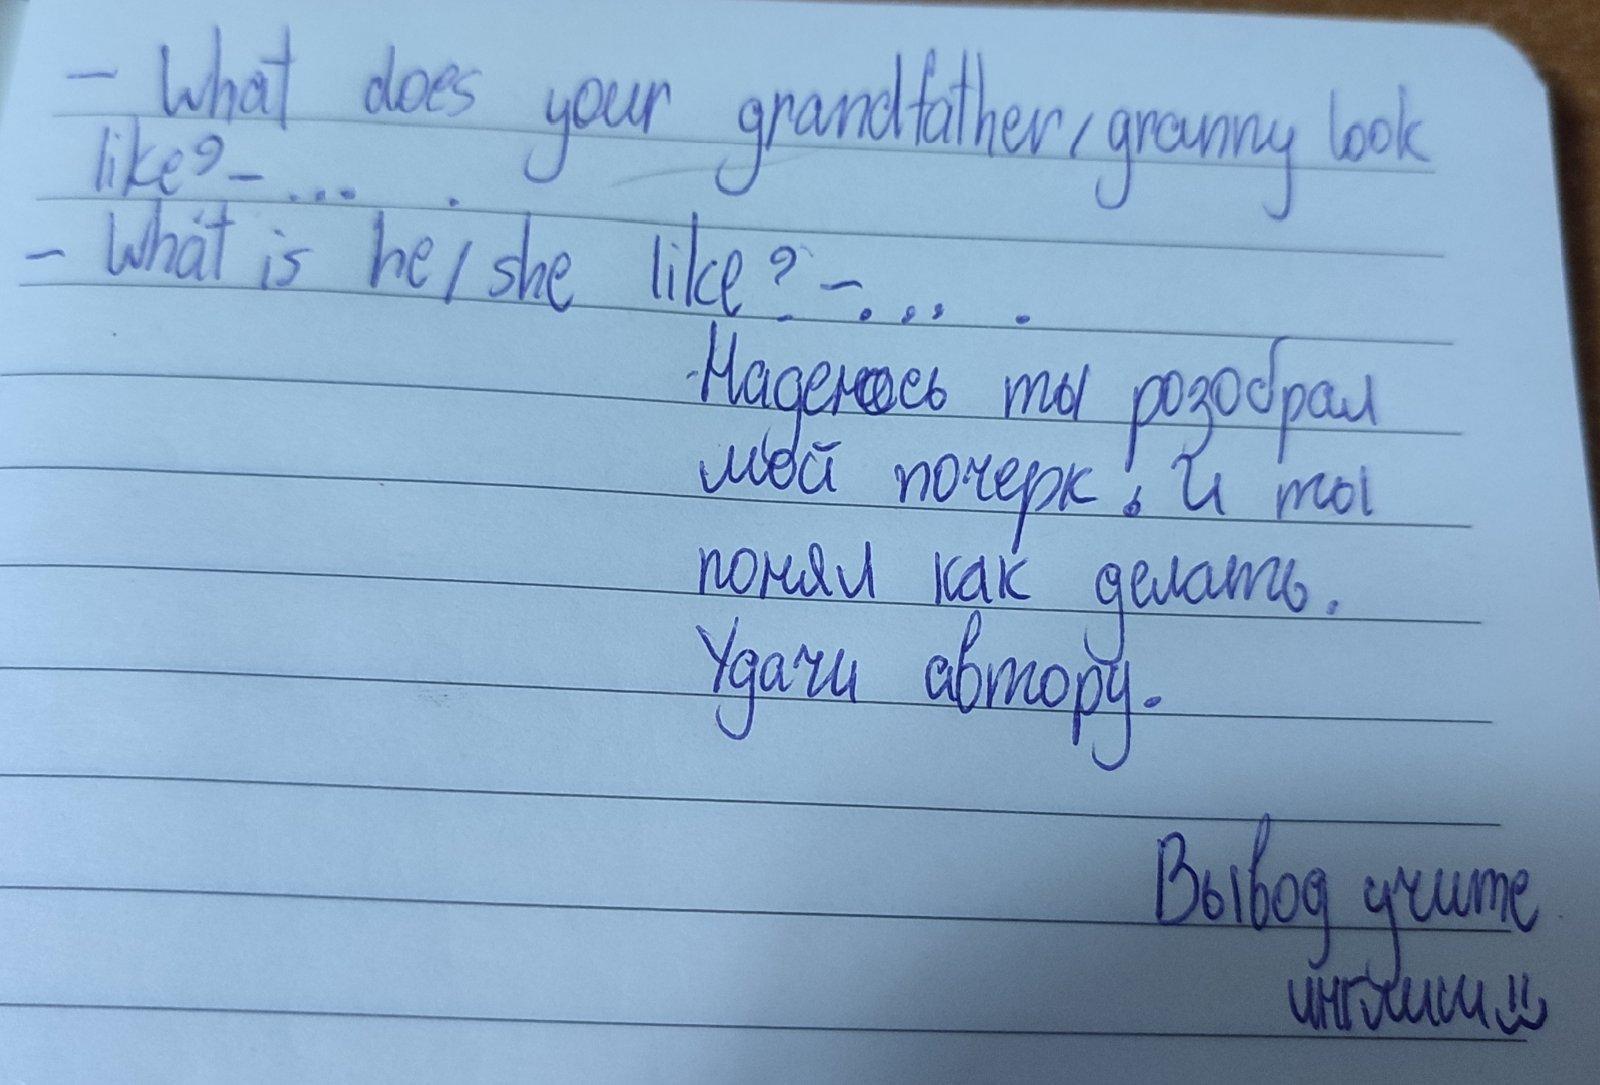 - What does your grandfather/granny look
like? - ... .
- What is he/she like? - ... .
Надеюсь ты розобрал
мой почерк. И ты
понял как делать.
Удачи автору.
Вывод учите
инглиш